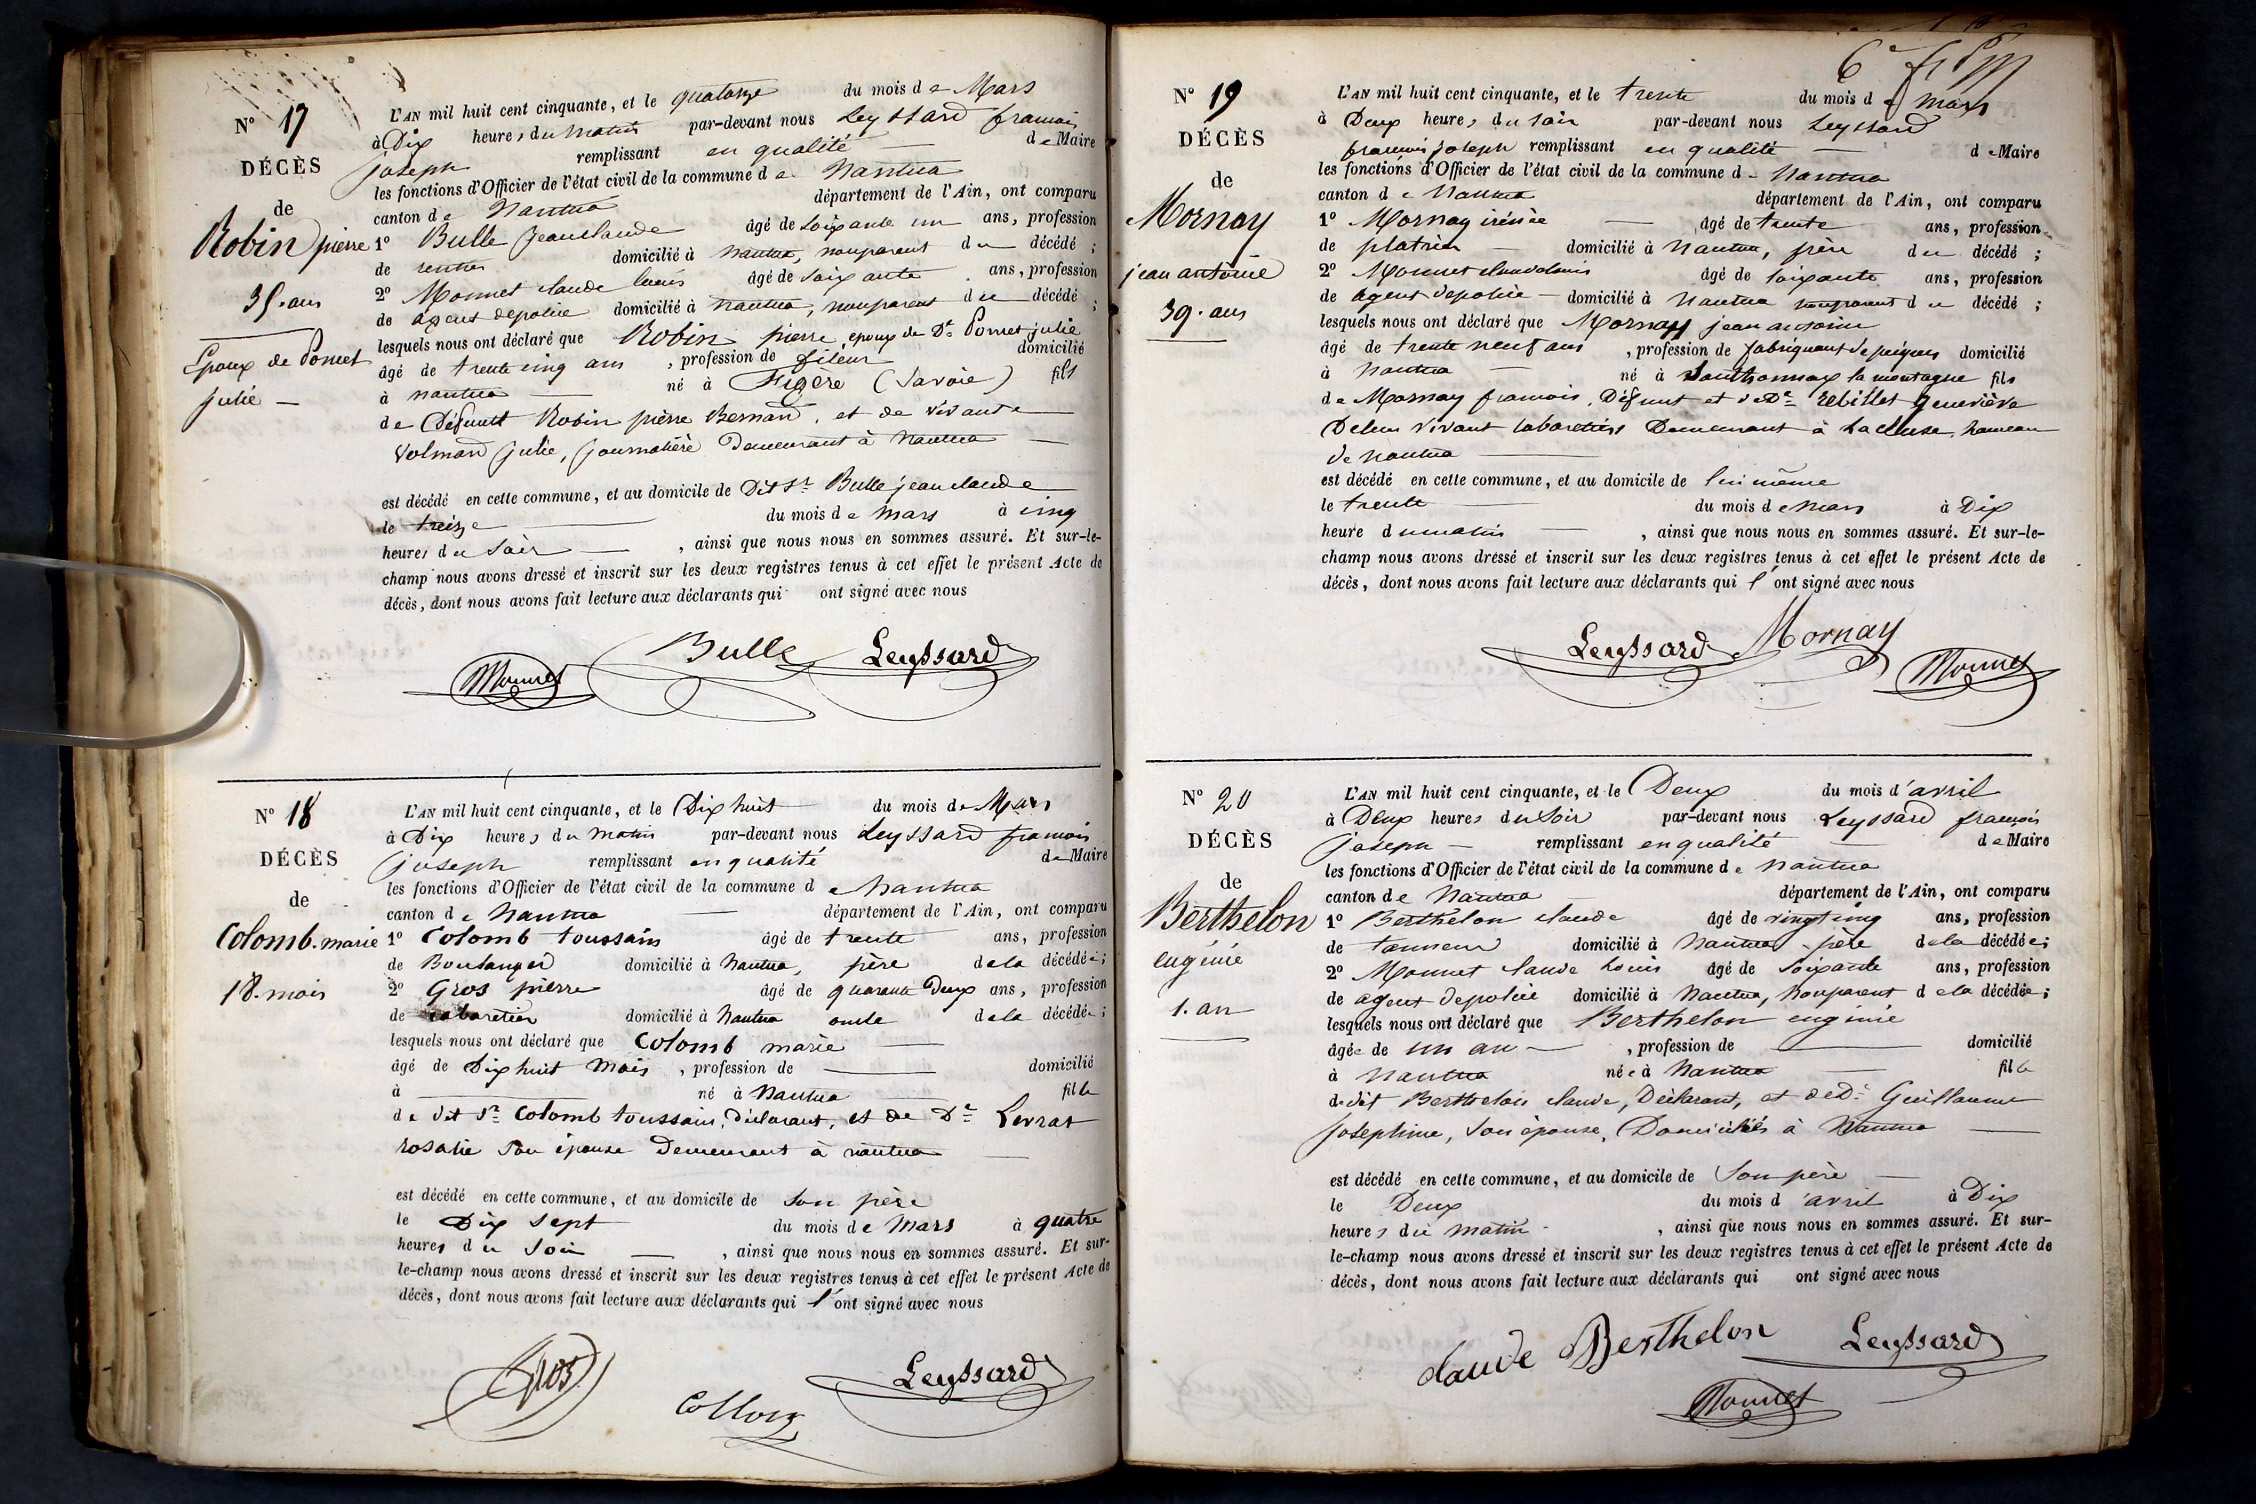 N° 17
DÉCÈS
de
Robin pierre
35 ans
Epoux de Pomet
julie —
L'AN mil huit cent cinquante, et le quatorze du mois de Mars
à Dix heures du matin par-devant nous Leyssard francois
joseph remplissant en qualité — de Maire
les fonctions d'Officier de l'état civil de la commune de Nantua
canton de Nantua département de l'Ain, ont comparu
1° Bulle Jean claude âgé de soixante un ans, profession
de rentier domicilié à Nantua, non parent du décédé ;
2° Monnet claude louis âgé de soixante ans, profession
de agent de police domicilié à nantua, non parent du décédé ;
lesquels nous ont déclaré que Robin pierre, epoux de De Pomet julie
âgé de trente cinq ans , profession de fileur domicilié
à nantua né à (Savoie) fils
de Défunt Robin pierre Bernard, et de vivante
Volmard julie, journalière Demeurant à Nantua —
est décédé en cette commune, et au domicile de Dit Sr Bulle jean claude
le treize du mois de Mars à cinq
heures du soir — , ainsi que nous nous en sommes assuré. Et sur-le-
champ nous avons dressé et inscrit sur les deux registres tenus à cet effet le présent Acte de
décès, dont nous avons fait lecture aux déclarants qui ont signé avec nous
Monnet Bulle Leyssard
N° 18
DÉCÈS
de
Colomb. marie
18. mois
L'AN mil huit cent cinquante, et le Dix huit du mois de Mars
à Dix heures du matin par-devant nous Leyssard francois
joseph remplissant en qualité de Maire
les fonctions d'Officier de l'état civil de la commune de Nantua
canton de Nantua — département de l'Ain, ont comparu
1° Colomb toussain âgé de trente ans, profession
de Boulanger domicilié à Nantua, père de la décédée ;
2° Gros pierre âgé de quarante Deux ans, profession
de cabaretier domicilié à Nantua oncle de la décédée ;
lesquels nous ont déclaré que Colomb marie —
âgé de Dix huit mois , profession de — domicilié
à — né à Nantua — fille
de dit Sr Colomb toussain, déclarant, et de De Levrat
rosalie son épouse Demeurant à nantua —
est décédé en cette commune, et au domicile de son père
le Dix sept du mois de Mars à quatre
heures du soir — , ainsi que nous nous en sommes assuré. Et sur-
le-champ nous avons dressé et inscrit sur les deux registres tenus à cet effet le présent Acte de
décès, dont nous avons fait lecture aux déclarants qui l'ont signé avec nous
Gros Leyssard
6e
N° 19
DÉCÈS
de
Mornay
jean antoine
39. ans
L'AN mil huit cent cinquante, et le trente du mois de mars
à Deux heures du soir par-devant nous Leyssard
francois joseph remplissant en qualité — de Maire
les fonctions d'Officier de l'état civil de la commune de Nantua
canton de Nantua département de l'Ain, ont comparu
1° Mornay irénée — âgé de trente ans, profession
de platrier — domicilié à Nantua, frère du décédé ;
2° Monnet claude louis âgé de soixante ans, profession
de agent de police — domicilié à Nantua non parent du décédé ;
lesquels nous ont déclaré que Mornay jean antoine
âgé de trente neuf ans , profession de fabriquant de peignes domicilié
à Nantua — né à Santhonnax la montagne fils
de Mornay francois, Défunt et de De rebillet Geneviève
De leur vivant cabaretiers Demeurant à La Cluse, hameau
de nantua —
est décédé en cette commune, et au domicile de lui même
le trente — du mois de Mars à Dix
heure du matin — , ainsi que nous nous en sommes assuré. Et sur-le-
champ nous avons dressé et inscrit sur les deux registres tenus à cet effet le présent Acte de
décès, dont nous avons fait lecture aux déclarants qui l'ont signé avec nous
Leyssard Mornay Monnet
N° 20
DÉCÈS
de
Berthelon
eugénie
1. an
L'AN mil huit cent cinquante, et le Deux du mois d'avril
à Deux heures du soir par-devant nous Leyssard francois
joseph — remplissant en qualité — de Maire
les fonctions d'Officier de l'état civil de la commune de Nantua
canton de Nantua département de l'Ain, ont comparu
1° Berthelon claude âgé de vingt cinq ans, profession
de tanneur domicilié à Nantua, père de la décédée ;
2° Monnet claude louis âgé de soixante ans, profession
de agent de police domicilié à Nantua, non parent de la décédée ;
lesquels nous ont déclaré que Berthelon eugénie
âgée de un an — , profession de — domicilié
à Nantua née à Nantua — fille
de dit Berthelon claude, Déclarant, et de De Guillaume
Josephine, son épouse, Domiciliés à Nantua —
est décédé en cette commune, et au domicile de son père —
le Deux du mois d'avril à Dix
heures du matin , ainsi que nous nous en sommes assuré. Et sur-
le-champ nous avons dressé et inscrit sur les deux registres tenus à cet effet le présent Acte de
décès, dont nous avons fait lecture aux déclarants qui ont signé avec nous
claude Berthelon Leyssard
Monnet